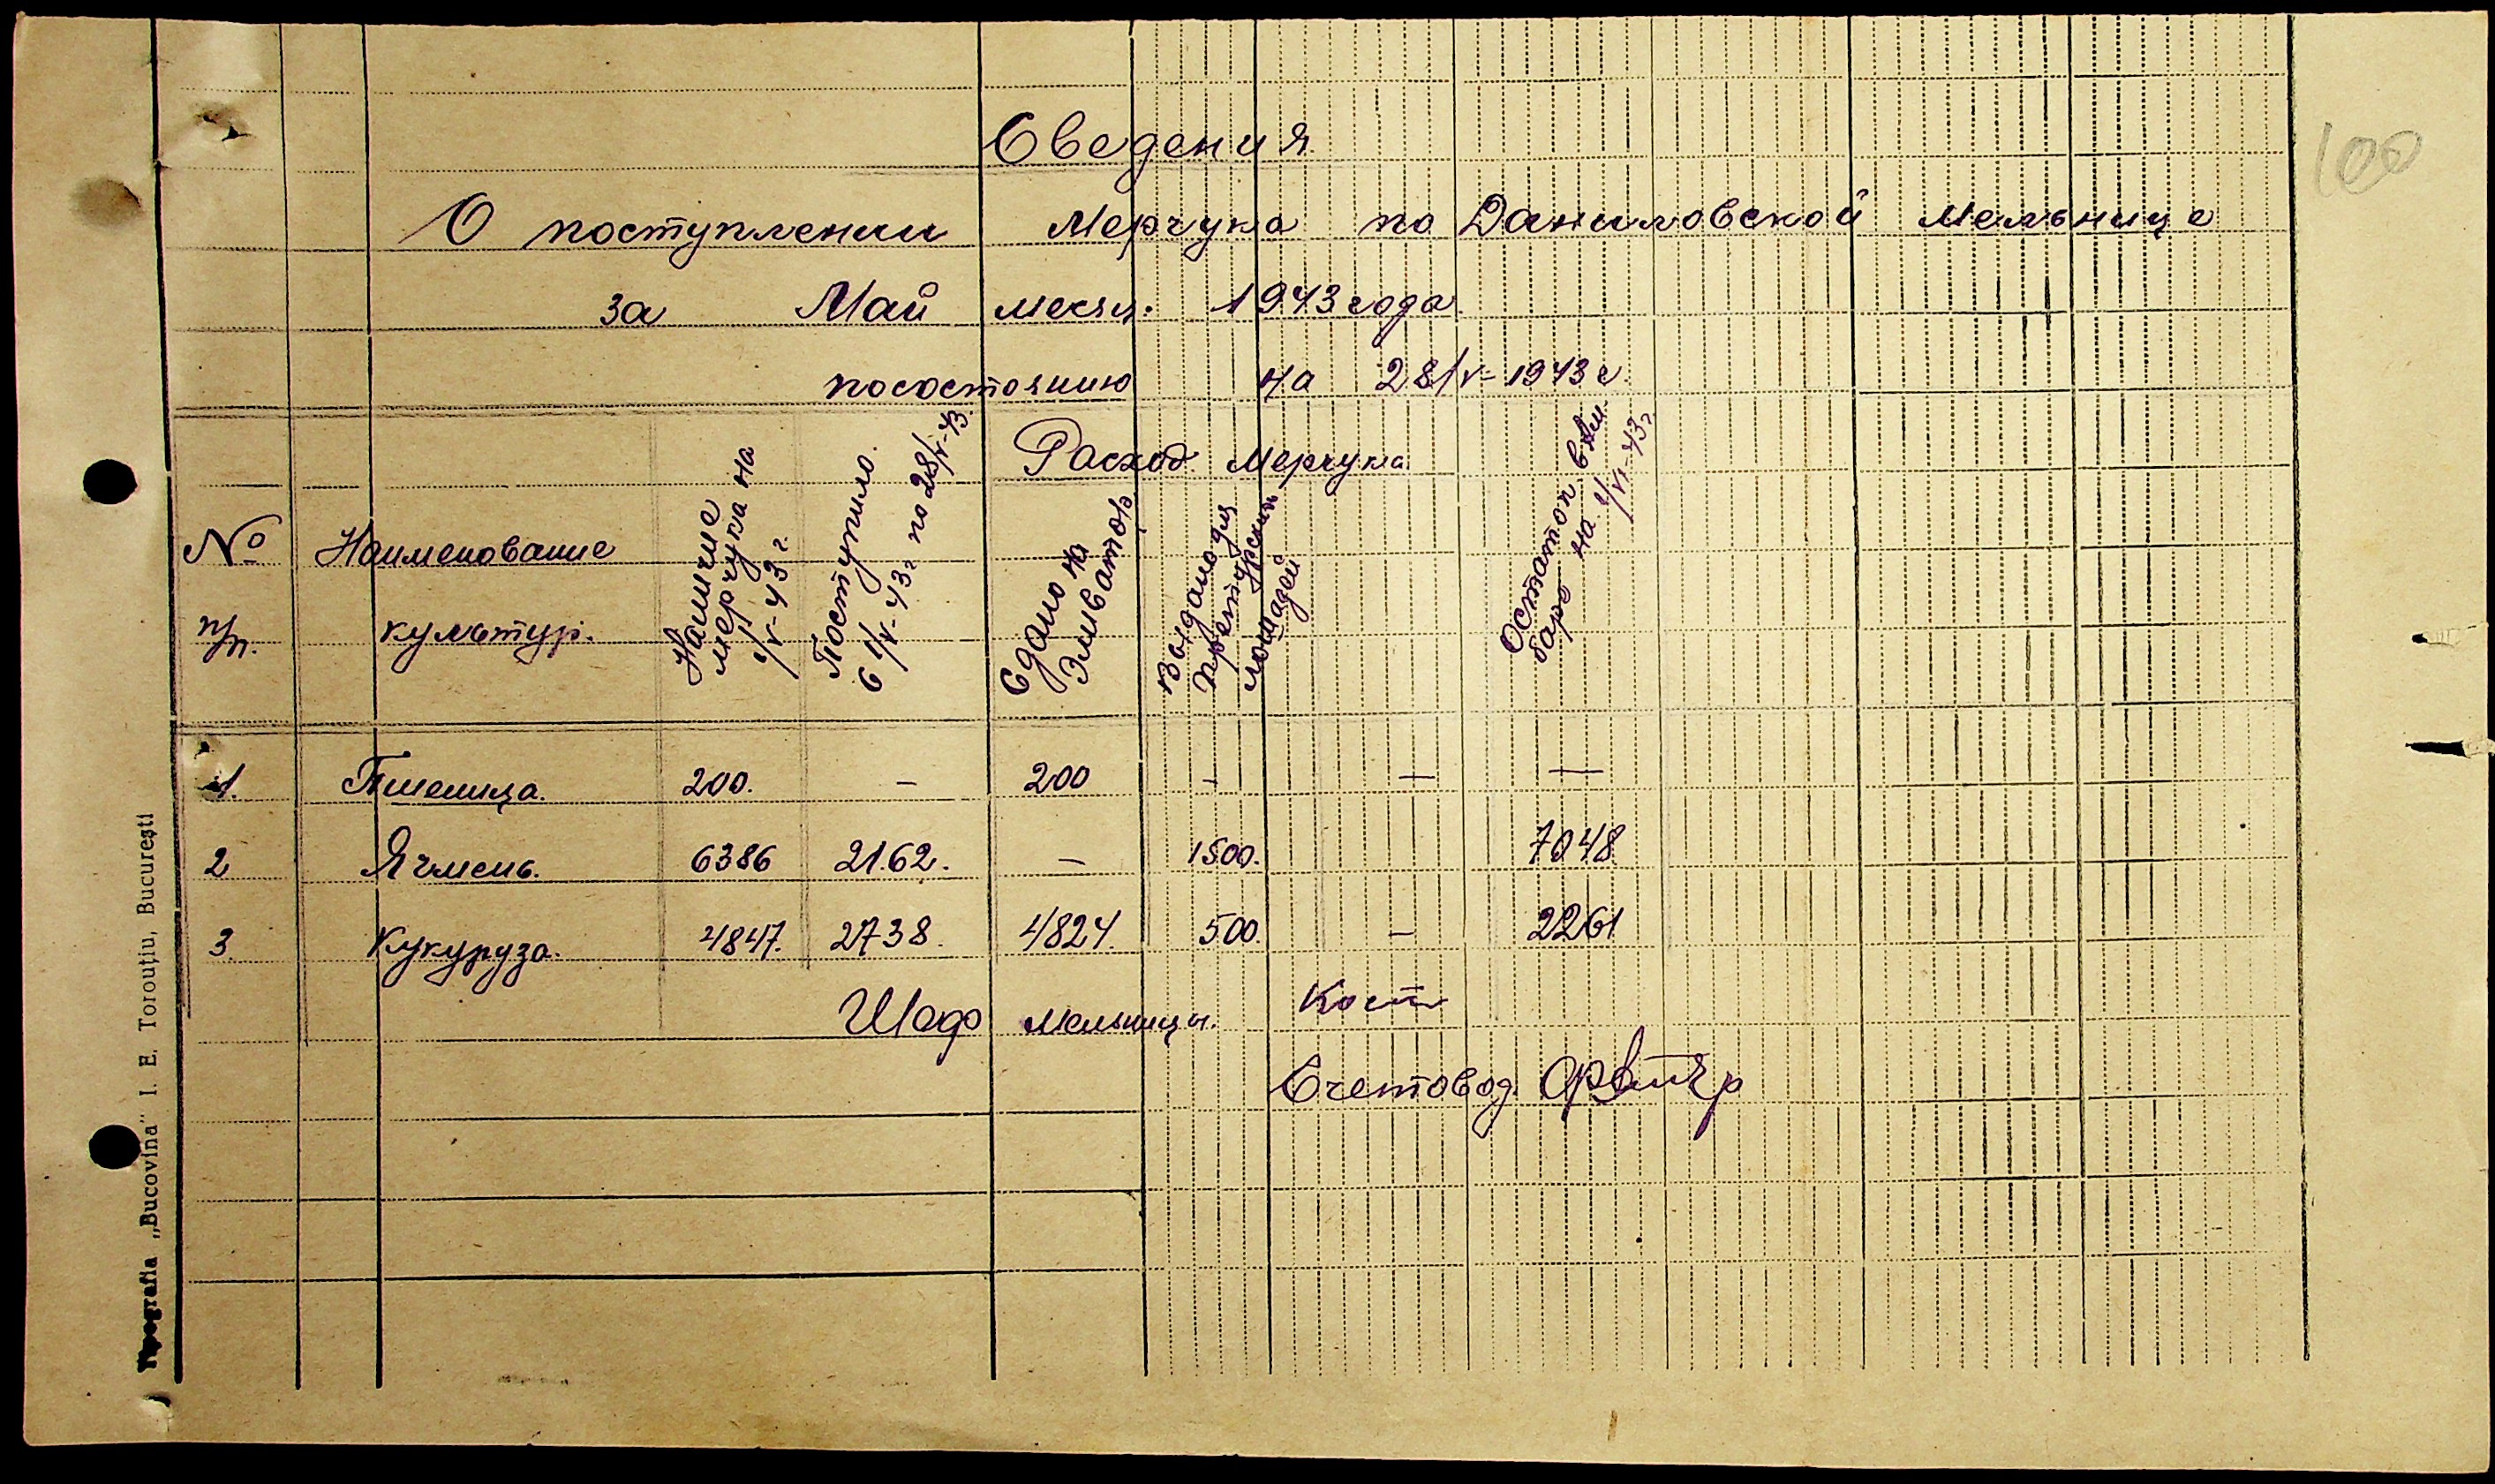 100
Сведения
О поступлении Мерчука по Даниловской мельнице
за Май месяц. 1943 года
посостоянию на 28/V-1943 г.
№ п/п.
Наименование культур.
Наличие мерчука на 1/V-43 г.
Поступило. С 1/V-43 г по 28/V-43
Расход Мерчука
Сдано на Эливатор
Выдано для лошадей
Остаток в Амбаре на 1/VI-43 г
1. Пшеница. 200. - 200 - - -
2 Ячмень. 6386 2162. - 1500. 7048
3 Кукуруза. 4847. 2738. 4824. 500. - 2261
Шеф мельницы.
Счетовод.
Tipografia „Bucovina" I. E. Torouţiu, Bucureşti